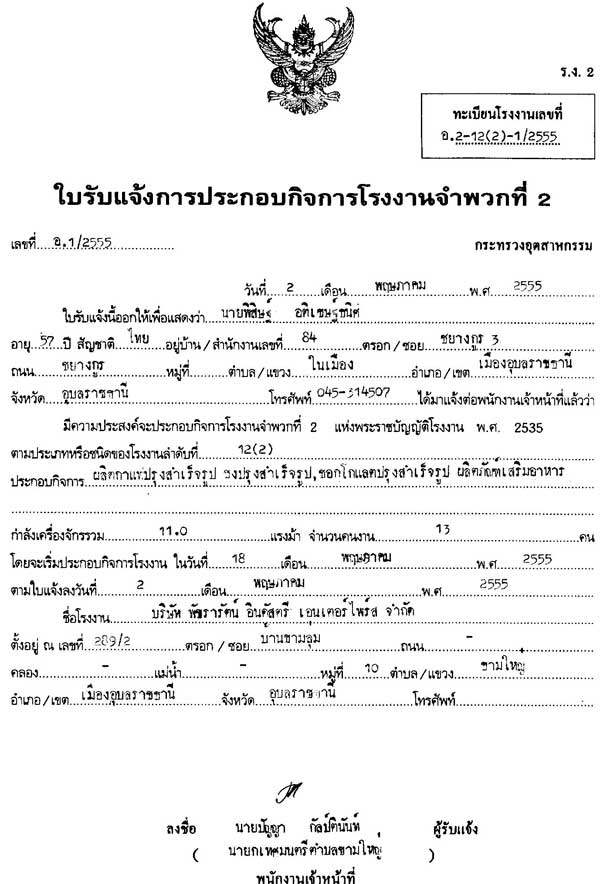 ร.ง. 2
ทะเบียนโรงงานเลขที่
อ.2-12(2)-1/2555
ใบรับแจ้งการประกอบกิจการโรงงานจำพวกที่ 2
เลขที่ อ.1/2555 กระทรวงอุตสาหกรรม
วันที่ 2 เดือน พฤษภาคม พ.ศ 2555
ใบรับแจ้งนี้ออกให้เพื่อแสดงว่า นายพิสิษฐ์ อคิเชษฐ์ชนิศ
อายุ 57 ปี สัญชาติ ไทย อยู่บ้าน/สำนักงานเลขที่ 84 ตรอก/ซอย ชยางกูร 3
ถนน ชยางกูร หมู่ที่ ตำบล/แขวง ในเมือง อำเภอ/เขต เมืองอุบลราชธานี
จังหวัด อุบลราชธานี โทรศัพท์ 045-314507 ได้มาแจ้งต่อพนักงานเจ้าหน้าที่แล้วว่า
มีความประสงค์จะประกอบกิจการโรงงานจำพวกที่ 2 แห่งพระราชบัญญัติโรงงาน พ.ศ. 2535
ตามประเภทหรือชนิดของโรงงานลำดับที่ 12(2)
ประกอบกิจการ ผลิตกาแฟปรุงสำเร็จรูป ชงปรุงสำเร็จรูป, ชอกโกแลตปรุงสำเร็จรูป ผลิตภัณฑ์เสริมอาหาร
กำลังเครื่องจักรรวม 11.0 แรงม้า จำนวนคนงาน 13 คน
โดยจะเริ่มประกอบกิจการโรงงาน ในวันที่ 18 เดือน พฤษภาคม พ.ศ 2555
ตามใบแจ้งลงวันที่ 2 เดือน พฤษภาคม พ.ศ 2555
ชื่อโรงงาน บริษัท พัชรารัตน์ อินดัสตรี เอนเตอร์ไพร์ส จำกัด
ตั้งอยู่ ณ เลขที่ 289/2 ตรอก/ซอย บ้านขามลุ่ม ถนน -
คลอง - แม่น้ำ - หมู่ที่ 10 ตำบล/แขวง ขามใหญ่
อำเภอ/เขต เมืองอุบลราชธานี จังหวัด อุบลราชธานี โทรศัพท์
ลงชื่อ นายปัญญา กัลป์ตินันท์ ผู้รับแจ้ง
( นายกเทศมนตรีตำบลขามใหญ่ )
พนักงานเจ้าหน้าที่